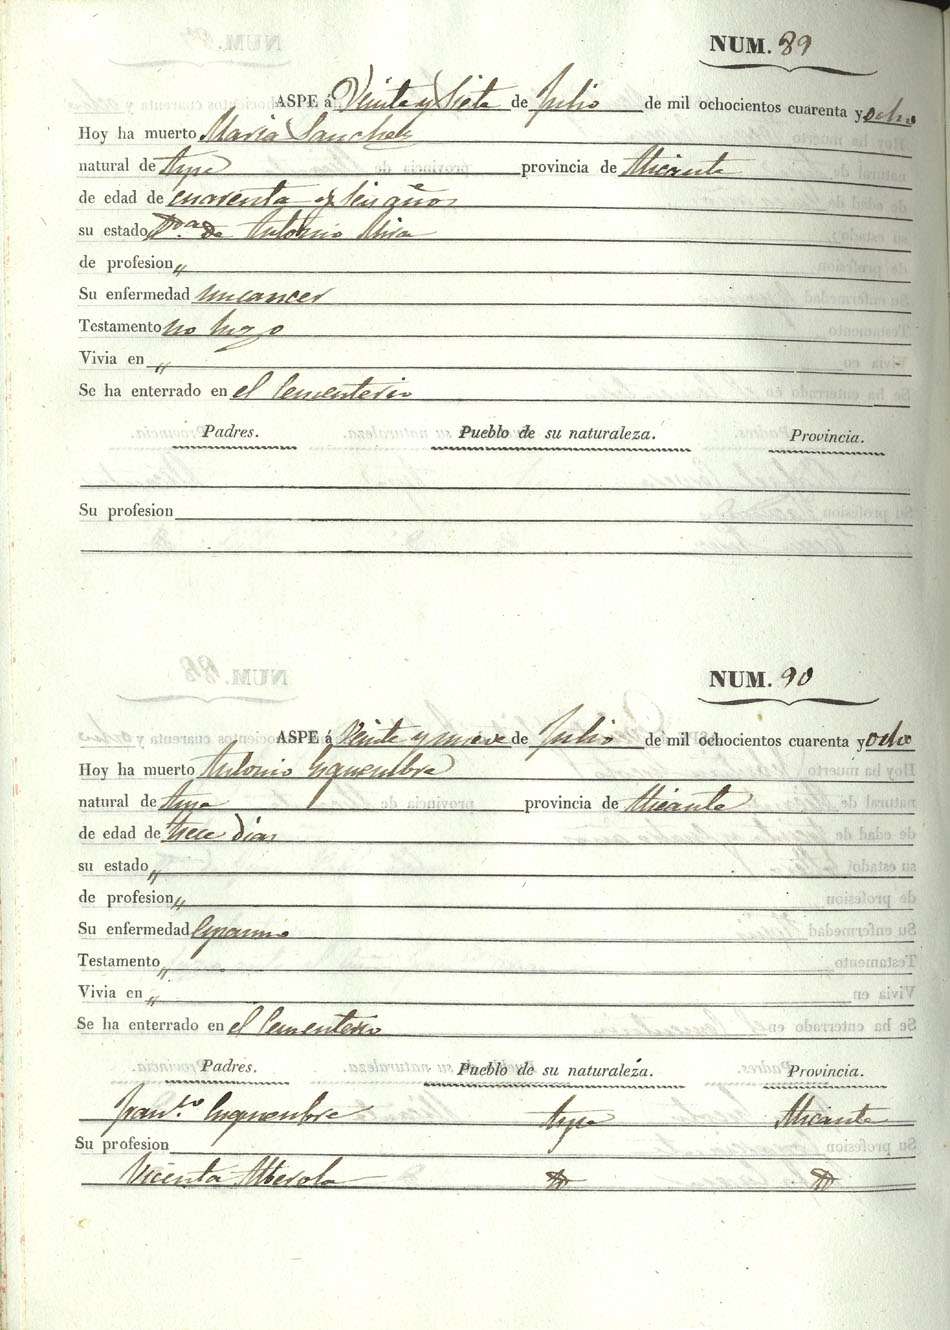 NUM. 89
ASPE á Veinte y Siete de Julio de mil ochocientos cuarenta y ocho
Hoy ha muerto Maria Sanchez
natural de Aspe provincia de Alicante
de edad de cuarenta y seis años
su estado V.ª de Antonio Mira
de profesion "
Su enfermedad un cancer
Testamento no hizo
Vivia en "
Se ha enterrado en el Cementerio
Padres. Pueblo de su naturaleza. Provincia.
Su profesion
NUM. 90
ASPE á Veinte y nueve de Julio de mil ochocientos cuarenta y ocho
Hoy ha muerto Antonio Esquembre
natural de Aspe provincia de Alicante
de edad de trece dias
su estado "
de profesion "
Su enfermedad Espasmo
Testamento "
Vivia en "
Se ha enterrado en el Cementerio
Padres. Pueblo de su naturaleza. Provincia.
Fran.co Esquembre Aspe Alicante
Su profesion
Vicenta Alberola